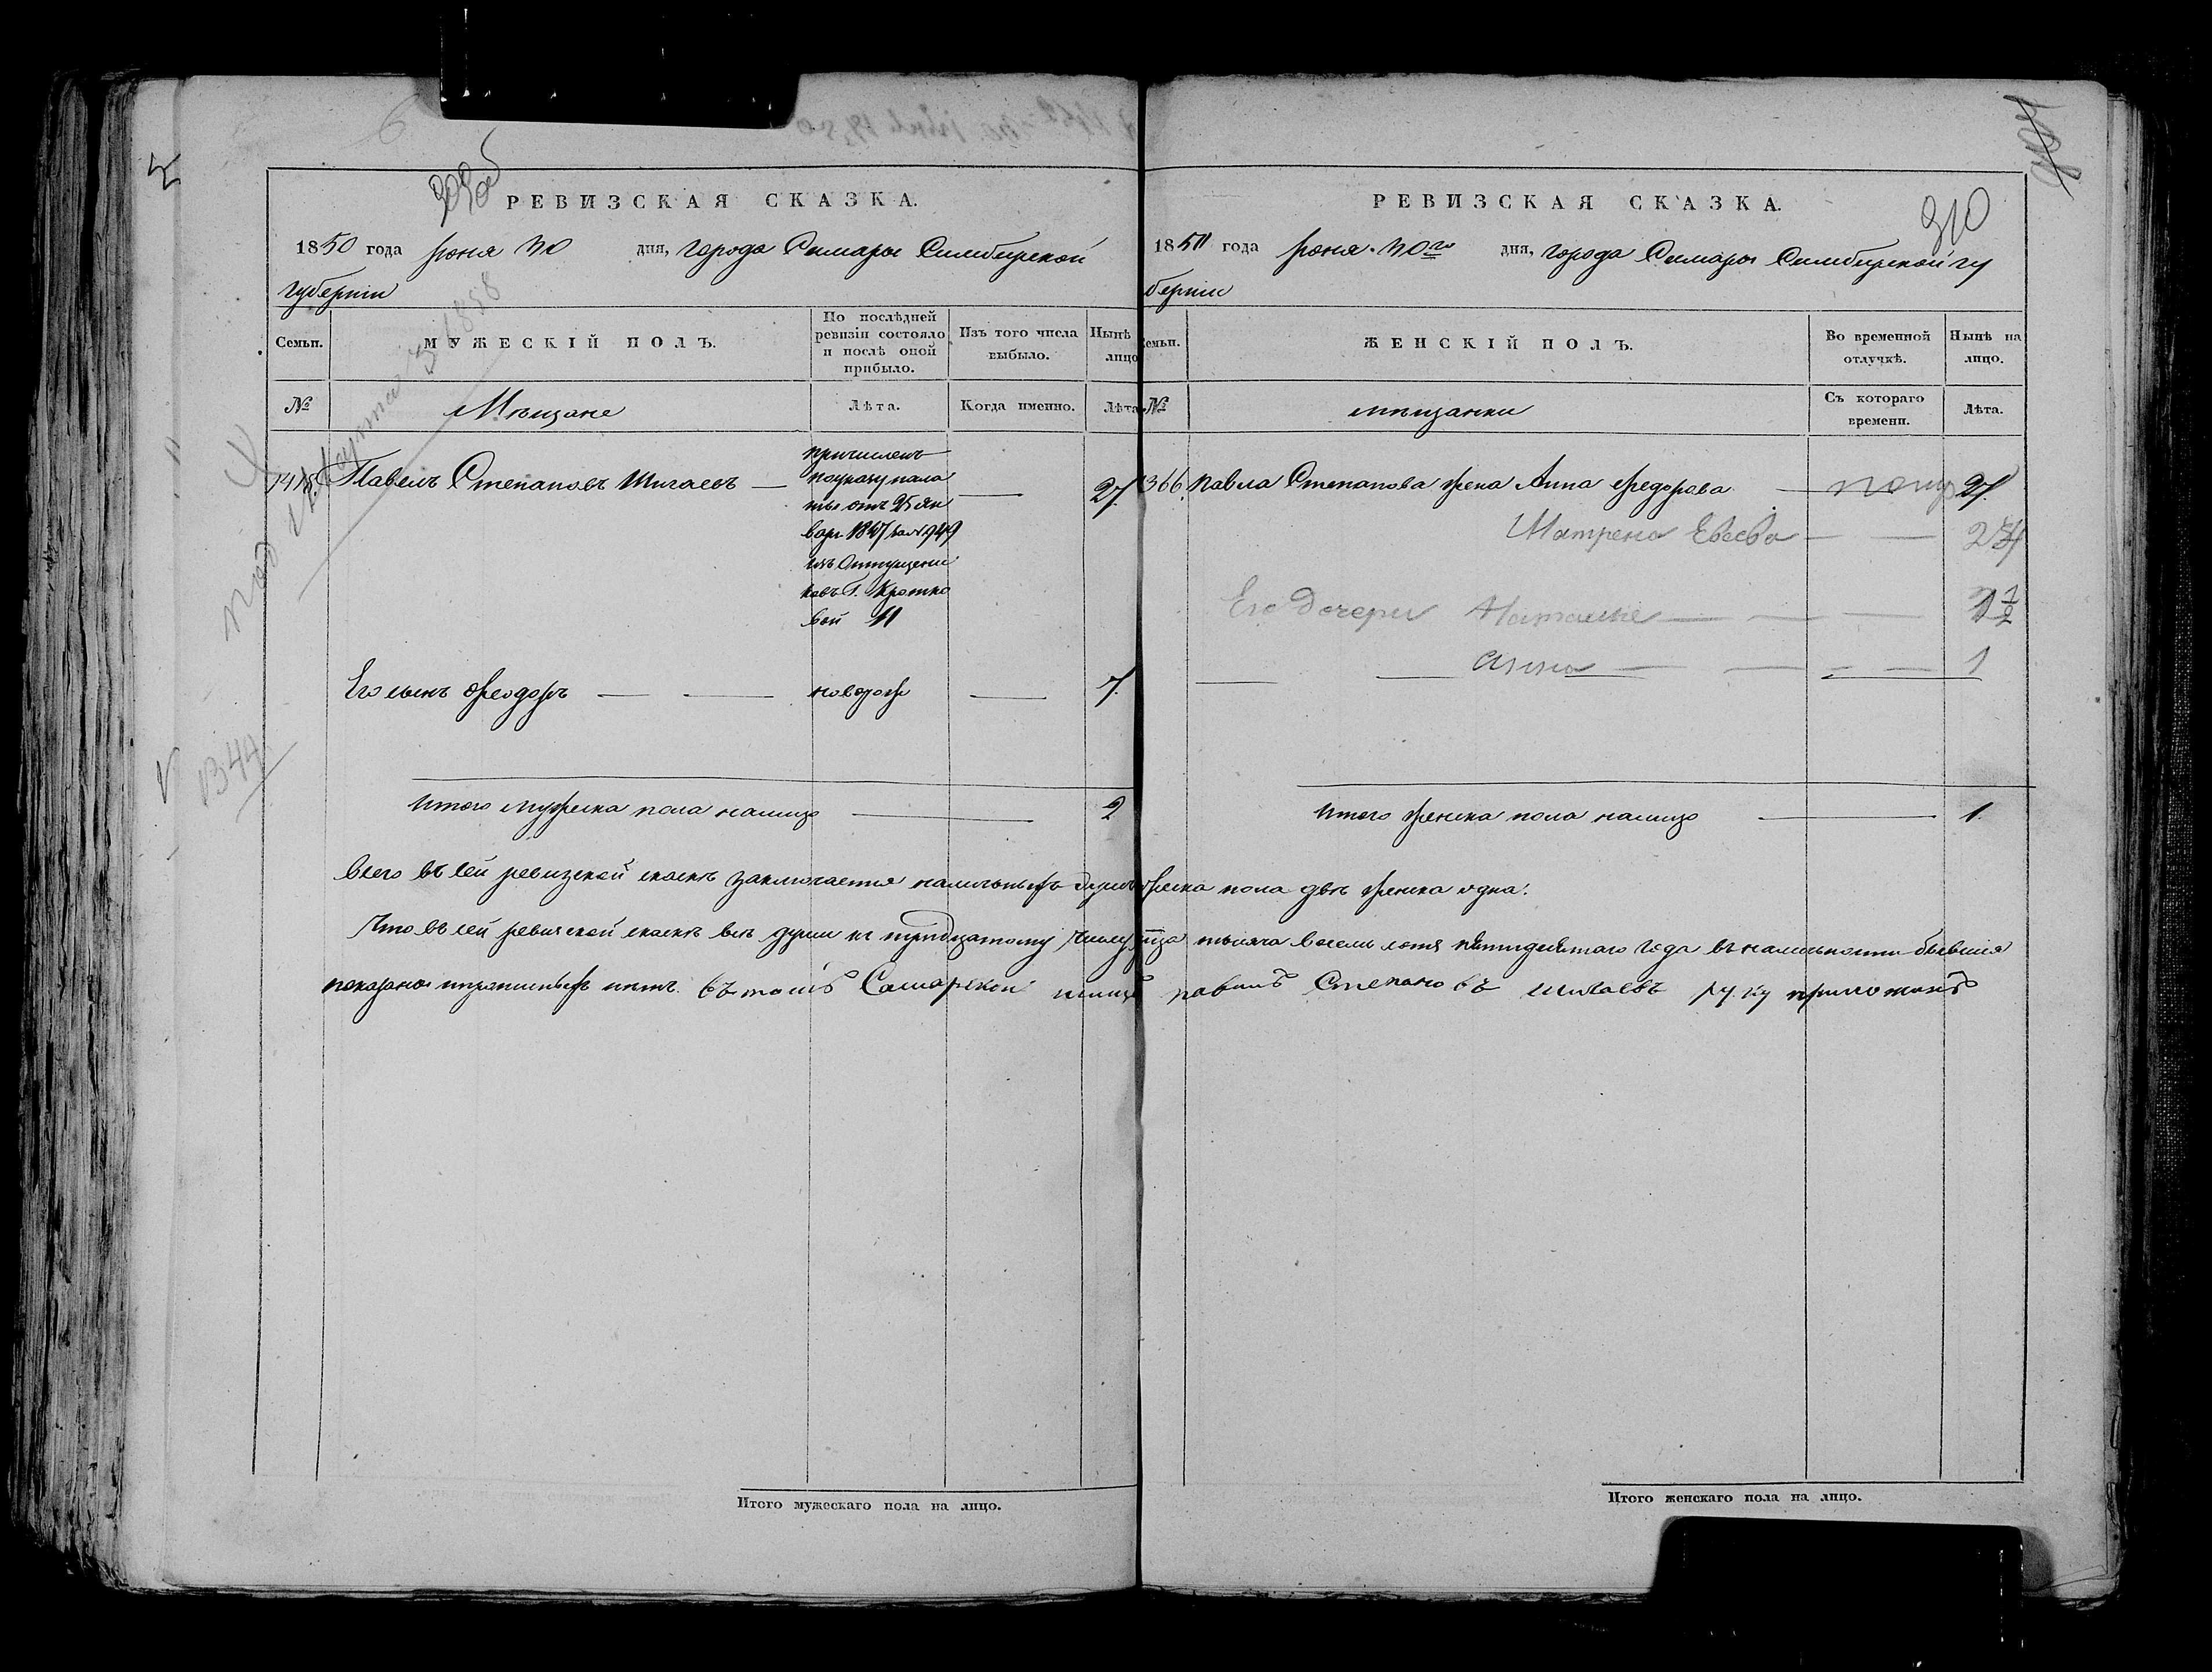 309 об
РЕВИЗСКАЯ СКАЗКА.
1850 года Июня 30 дня, города Самары Симбирской
губерніи
Семьи. МУЖЕСКІЙ ПОЛЪ. По послѣдней ревизіи состояло и послѣ оной прибыло. Изъ того числа выбыло. Нынѣ лицо
№ Мѣщане Лѣта. Когда именно. Лѣта
Павелъ Степановъ Шигаевъ — — 27.
причисленъ
по указу пала
ты отъ 25 ян
варя 1847 за № 949
изъ отпущени
ковъ Г. Кротко
вой
Его сынъ Феодоръ — — новорож — 7.
Итого мужеска пола налицо — 2
1344
1858
310
РЕВИЗСКАЯ СКАЗКА.
1850 года Июня 30го дня, города Самары Симбирской гу
берніи
семьи. ЖЕНСКІЙ ПОЛЪ. Во временной отлучкѣ. Нынѣ на лицо.
№ мѣщанки Съ котораго времени. Лѣта.
366. Павла Степанова жена Анна Федорова — 27.
Матрена Евсева — —
Его дочери — — 1½
Анна — — 1
Итого женска пола налицо — 1.
Всего въ сей ревизской сказкѣ заключается наличныхъ душъ мужеска пола двѣ женска одна.
Что въ сей ревизской сказкѣ всѣ души къ тридцатому числу тысяча восемь сотъ пятидесятаго года въ наличности бывшія
показаны и прописныхъ нѣтъ. Въ томъ Самарской Павилъ Степановъ Шигаевъ руку приложилъ
Итого мужескаго пола на лицо.
Итого женскаго пола на лицо.